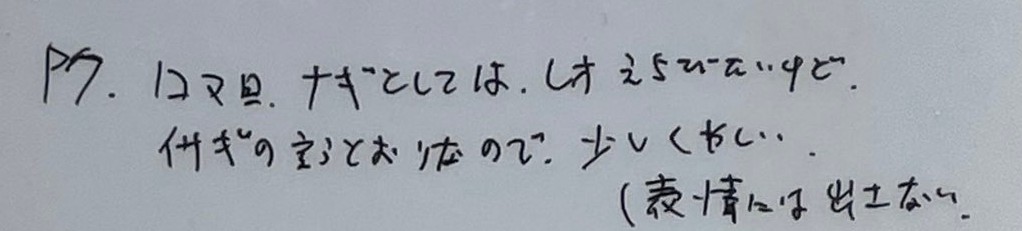 P7. 1コマ目. ナギとしては. レオ えらびたいけど.
イサギの言うとおりなので. 少しくやしい.
(表情には出さない.